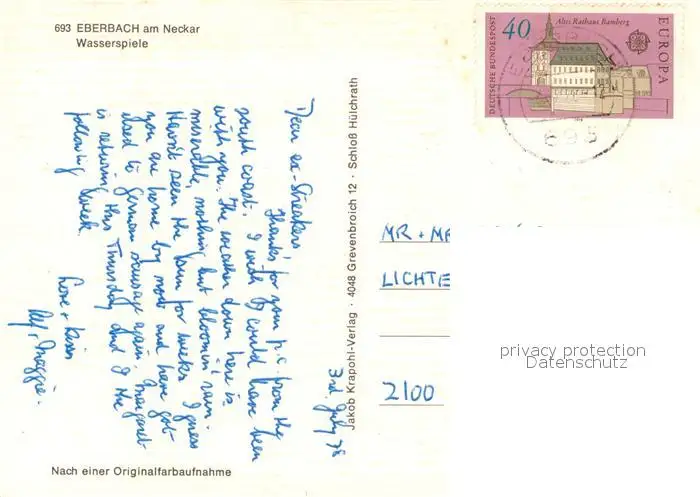 693 EBERBACH am Neckar
Wasserspiele
3rd. July 78
Dear ex-Streakers,
Thanks for your p.c. from the
south coast. I wish I could have been
with you. The weather down here is
miserable, nothing but bloomin' rain.
Haven't seen the sun for weeks. I guess
you are home by now and have got
used to German sausage again. Margaret
is returning this Thursday and I the
following week.
Love + kisses
Maggie.
Nach einer Originalfarbaufnahme
Jakob Krapohl-Verlag · 4048 Grevenbroich 12 · Schloß Hülchrath
DEUTSCHE BUNDESPOST
40
Altes Rathaus Bamberg
EUROPA
CEPT
695
MR + M
LICHTE
2100
privacy protection
Datenschutz